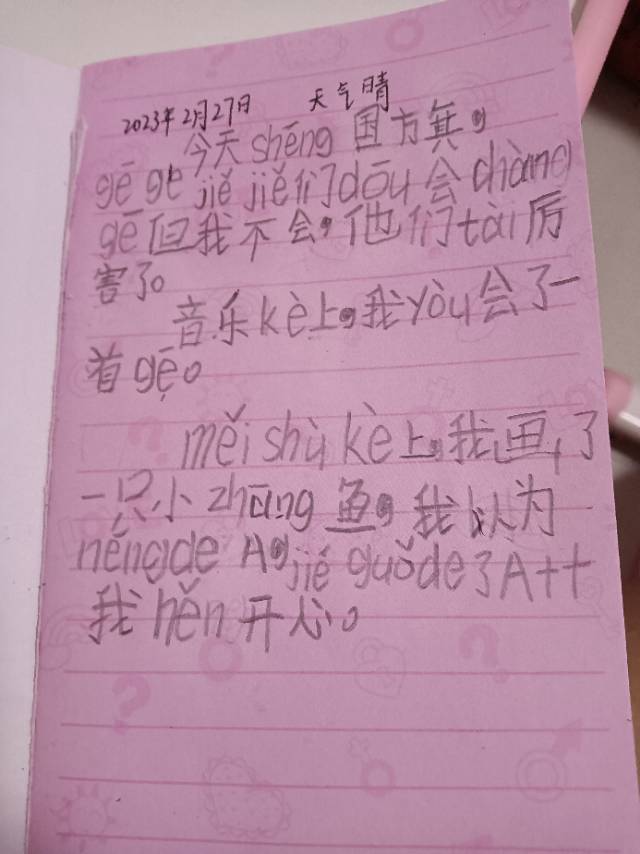 2023年2月27日 天气晴
今天shēng国方舞，
gē ge jiě jiě们dōu会chàng
gē但我不会，他们tài厉
害了。
音乐kè上，我yòu会了一
首gē。
měi shù kè上，我画了
一只小zhāng鱼，我以为
néngde A，jié guǒde了A++
我hěn开心。